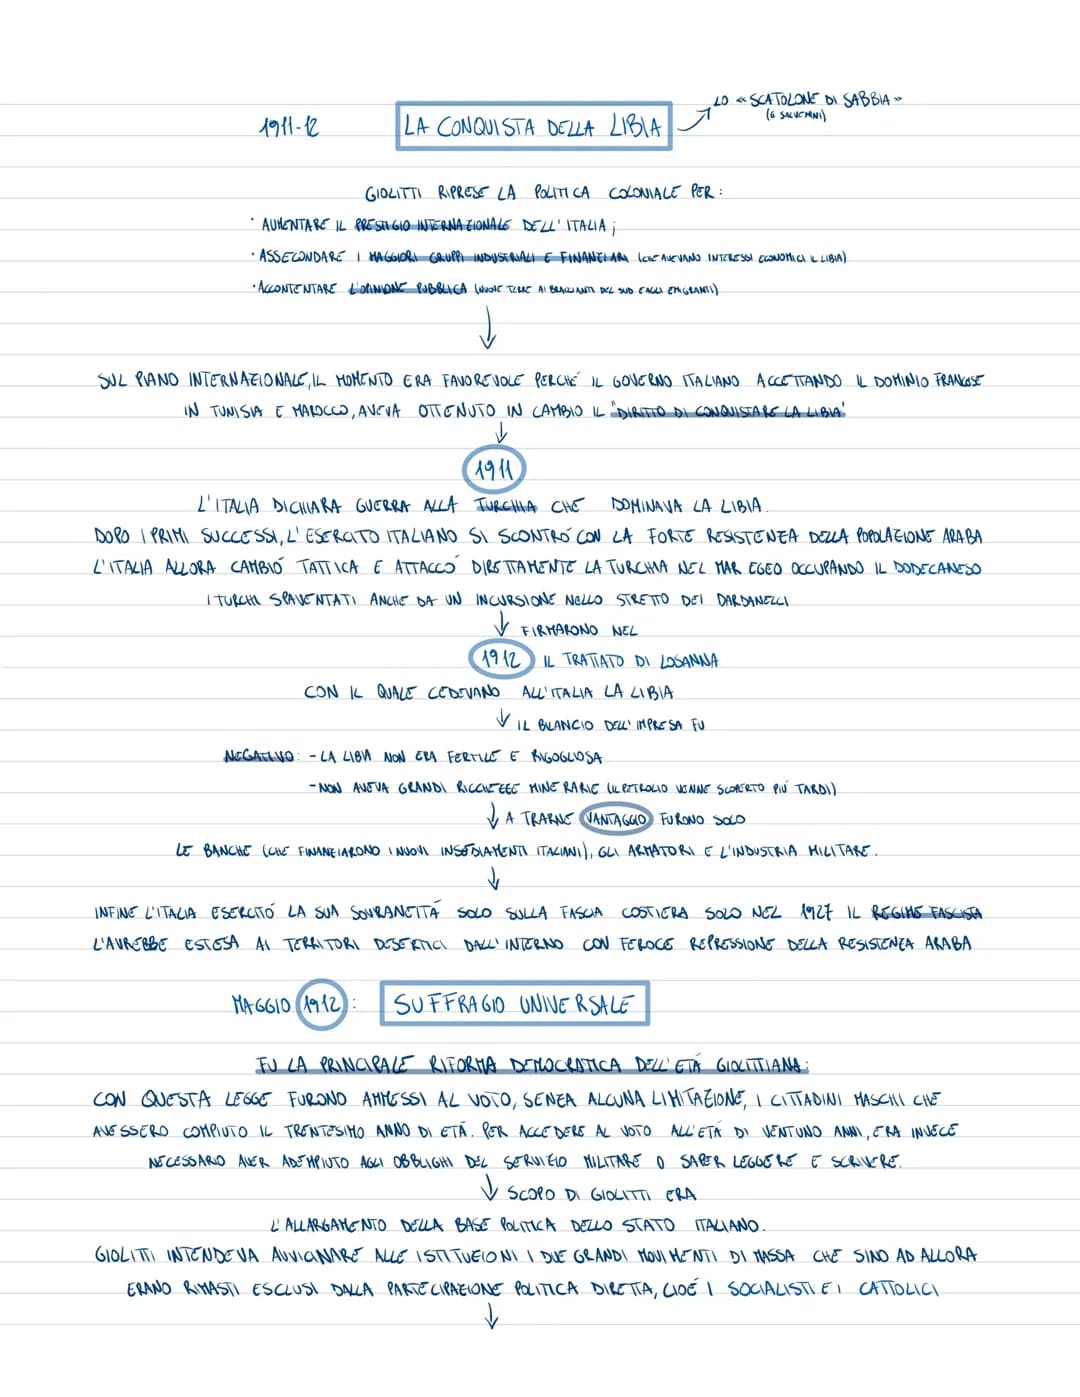 1911-12 LA CONQUISTA DELLA LIBIA LO «SCATOLONE DI SABBIA»
(G SALVEMINI)
GIOLITTI RIPRESE LA POLITICA COLONIALE PER:
· AUMENTARE IL PRESTIGIO INTERNAZIONALE DELL'ITALIA;
· ASSECONDARE I MAGGIORI GRUPPI INDUSTRIALI E FINANZIARI (CHE AVEVANO INTERESSI ECONOMICI IL LIBIA)
· ACCONTENTARE L'OPINIONE PUBBLICA (NUOVE TERRE AI BRACCIANTI DEL SUD E AGLI EMIGRANTI)
↓
SUL PIANO INTERNAZIONALE, IL MOMENTO ERA FAVOREVOLE PERCHÉ IL GOVERNO ITALIANO ACCETTANDO IL DOMINIO FRANCESE
IN TUNISIA E MAROCCO, AVEVA OTTENUTO IN CAMBIO IL "DIRITTO DI CONQUISTARE LA LIBIA"
↓
1911
L'ITALIA DICHIARA GUERRA ALLA TURCHIA CHE DOMINAVA LA LIBIA.
DOPO I PRIMI SUCCESSI, L'ESERCITO ITALIANO SI SCONTRÓ CON LA FORTE RESISTENZA DELLA POPOLAZIONE ARABA
L'ITALIA ALLORA CAMBIÓ TATTICA E ATTACCÓ DIRETTAMENTE LA TURCHIA NEL MAR EGEO OCCUPANDO IL DODECANESO
I TURCHI SPAVENTATI ANCHE DA UN INCURSIONE NELLO STRETTO DEI DARDANELLI
↓ FIRMARONO NEL
1912 IL TRATTATO DI LOSANNA
CON IL QUALE CEDEVANO ALL'ITALIA LA LIBIA
↓ IL BILANCIO DELL'IMPRESA FU
NEGATIVO: - LA LIBIA NON ERA FERTILE E RIGOGLIOSA
- NON AVEVA GRANDI RICCHEZZE MINERARIE (IL PETROLIO VENNE SCOPERTO PIÚ TARDI)
↓ A TRARNE VANTAGGIO FURONO SOLO
LE BANCHE (CHE FINANZIARONO I NUOVI INSEDIAMENTI ITALIANI), GLI ARMATORI E L'INDUSTRIA MILITARE.
↓
INFINE L'ITALIA ESERCITÓ LA SUA SOVRANITÁ SOLO SULLA FASCIA COSTIERA SOLO NEL 1927 IL REGIME FASCISTA
L'AVREBBE ESTESA AI TERRITORI DESERTICI DALL'INTERNO CON FEROCE REPRESSIONE DELLA RESISTENZA ARABA
MAGGIO 1912: SUFFRAGIO UNIVERSALE
FU LA PRINCIPALE RIFORMA DEMOCRATICA DELL'ETÁ GIOLITTIANA:
CON QUESTA LEGGE FURONO AMMESSI AL VOTO, SENZA ALCUNA LIMITAZIONE, I CITTADINI MASCHI CHE
AVESSERO COMPIUTO IL TRENTESIMO ANNO DI ETÁ. PER ACCEDERE AL VOTO ALL'ETÁ DI VENTUNO ANNI, ERA INVECE
NECESSARIO AVER ADEMPIUTO AGLI OBBLIGHI DEL SERVIZIO MILITARE O SAPER LEGGERE E SCRIVERE.
↓ SCOPO DI GIOLITTI ERA
L'ALLARGAMENTO DELLA BASE POLITICA DELLO STATO ITALIANO.
GIOLITTI INTENDEVA AVVICINARE ALLE ISTITUZIONI I DUE GRANDI MOVIMENTI DI MASSA CHE SINO AD ALLORA
ERANO RIMASTI ESCLUSI DALLA PARTECIPAZIONE POLITICA DIRETTA, CIOÉ I SOCIALISTI E I CATTOLICI
↓